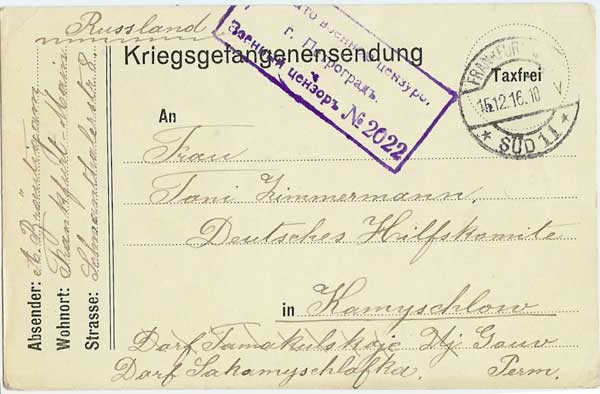 Russland
Kriegsgefangenensendung
военной цензуро.
г. Петроградъ.
Военный цензоръ № 2022
FRANKFURT
Taxfrei
15.12.16. 10 V
* SÜD 11 *
An
Frau
Toni Zimmermann,
Deutsches Hilfskomite
in Kamyschlow
Dorf Tamakulskoje Gouv
Dorf Sakamyschlofka. Perm.
Absender: A.
Wohnort: Frankfurt-Main
Strasse: 8